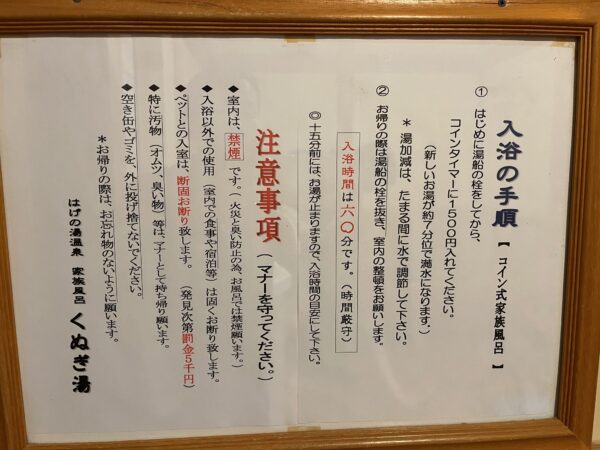 入浴の手順【コイン式家族風呂】
① はじめに湯船の栓をしてから、
コインタイマーに1500円入れてください。
(新しいお湯が約7分位で満水になります。)
＊湯加減は、たまる間に水で調節して下さい。
② お帰りの際は湯船の栓を抜き、室内の整頓をお願いします。
入浴時間は六〇分です。(時間厳守)
◎十五分前には、お湯が止まりますので、入浴時間の目安にして下さい。
注意事項(マナーを守ってください。)
◆室内は、禁煙です。(火災と臭い防止の為、お風呂では禁煙願います。)
◆入浴以外での使用(室内での食事や宿泊等)は固くお断り致します。
◆ペットとの入室は、断固お断り致します。(発見次第罰金5千円)
◆特に汚物(オムツ、臭い物)等は、マナーとして持ち帰り願います。
◆空き缶やゴミを、外に投げ捨てないでください。
＊お帰りの際は、お忘れ物のないように願います。
はげの湯温泉 家族風呂 くぬぎ湯